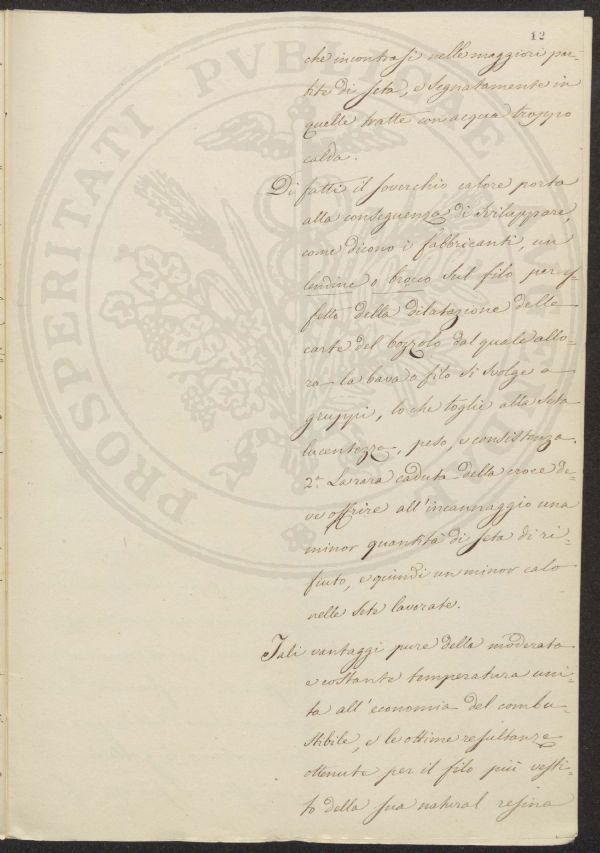 12
che incontrasi nelle maggiori par-
tite di seta, e segnatamente in
quelle tratte con acqua troppo
calda.
Di fatti il soverchio calore porta
alla conseguenza di sviluppare,
come dicono i fabbricanti, un
lendine o brocco sul filo per ef-
fetto della dilatazione delle
carte del bozzolo dal quale allo-
ra la bava o filo si svolge a
gruppi, lo che toglie alla seta
lucentezza, peso, e consistenza.
2.a La rara caduta della croce de-
ve offrire all'incannaggio una
minor quantità di seta di ri-
fiuto, e quindi un minor calo
nelle sete lavorate.
Tali vantaggi pure della moderata
e costante temperatura uni-
ta all'economia del combu-
stibile, e le ottime resultanze
ottenute per il filo più vesti-
to della sua natural resina
PROSPERITATI PVBLICAE